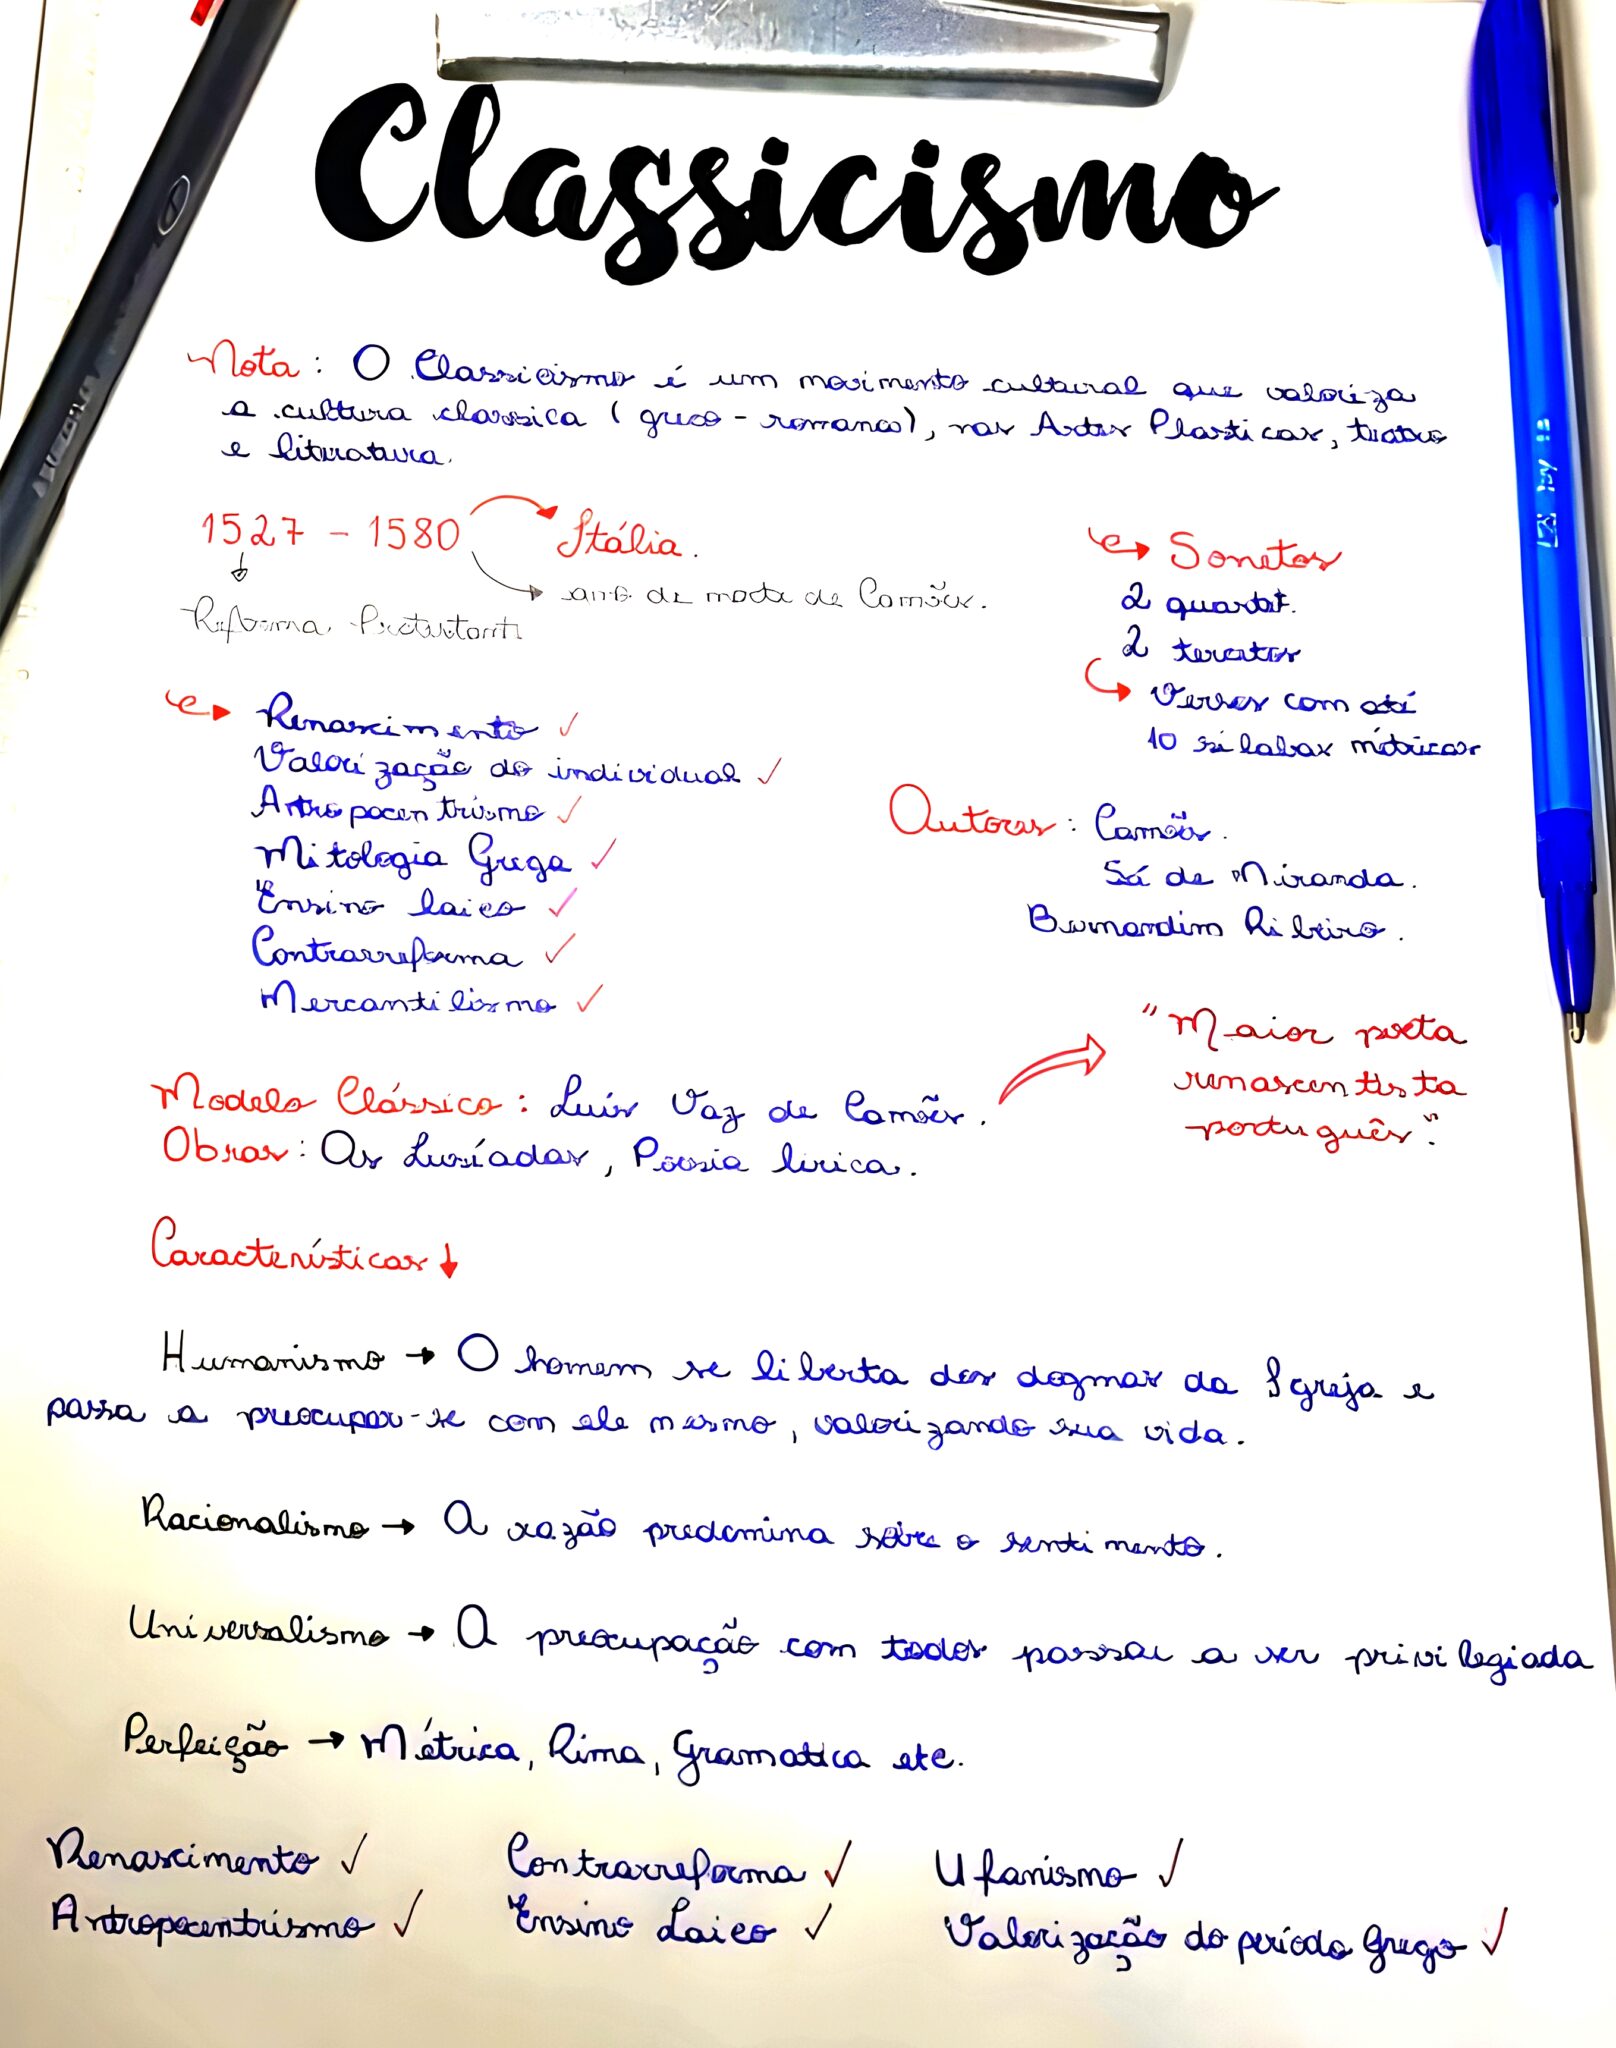 Classicismo
Nota: O Classicismo é um movimento cultural que valoriza
a cultura classica (greco-romana), nas Artes Plasticas, teatro
e literatura.
1527 - 1580
Itália.
ano de morte de Camões.
Reforma Protestante
Sonetos
2 quartet.
2 tercetos
Versos com até
10 silabas métricas
Renascimento ✓
Valorização do individual ✓
Antropocentrismo ✓
Mitologia Grega ✓
Ensino laico ✓
Contrarreforma ✓
Mercantilismo ✓
Autores: Camões.
Sá de Miranda.
Bernardim Ribeiro.
Modelo Clássico: Luís Vaz de Camões.
Obras: Os Lusíadas, Poesia lirica.
"Maior poeta
renascentista
português".
Características ↓
Humanismo → O homem se liberta dos dogmas da Igreja e
passa a preocupar-se com ele mesmo, valorizando sua vida.
Racionalismo → A razão predomina sobre o sentimento.
Universalismo → A preocupação com todos passou a ser privilegiada
Perfeição → Métrica, Rima, Gramatica etc.
Renascimento ✓ Contrarreforma ✓ Ufanismo ✓
Antropocentrismo ✓ Ensino Laico ✓ Valorização do período Grego ✓